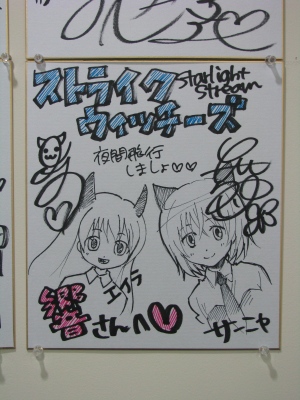 ストライク
ウィッチーズ
Starlight
Stream
夜間飛行
しましょ♡♡
エイラ
サーニャ
響さんへ♡